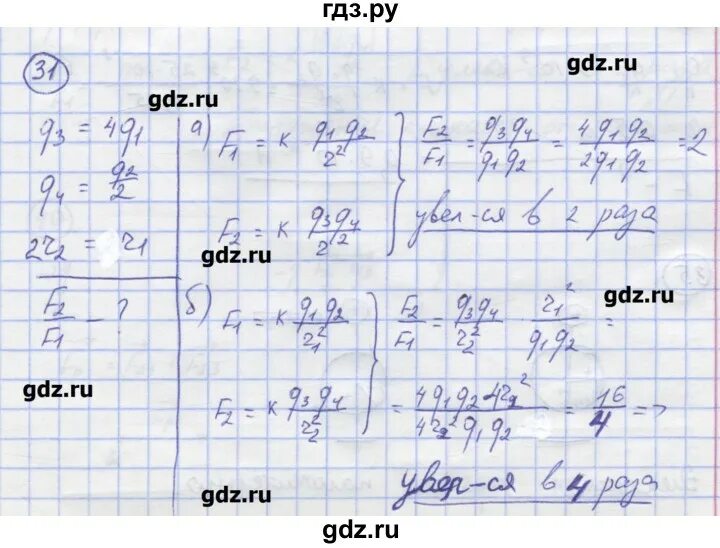 гдз.ру
31
gdz.ru
gdz.ru
q3 = 4q1
q4 = q2/2
2r2 = r1
F2/F1 - ?
а) F1 = k q1 q2 / r²
F2 = k q3 q4 / r²
F2/F1 = q3 q4 / q1 q2 = 4 q1 q2 / 2 q1 q2 = 2
увел-ся в 2 раза
gdz.ru
gdz.ru
б) F1 = k q1 q2 / r1²
F2 = k q3 q4 / r2²
F2/F1 = q3 q4 / r2² · r1² / q1 q2 =
= 4 q1 q2 4r2² / 4r2² q1 q2 = 16/4 =>
увел-ся в 4 раза
gdz.ru
gdz.ru
gdz.ru
gdz.ru